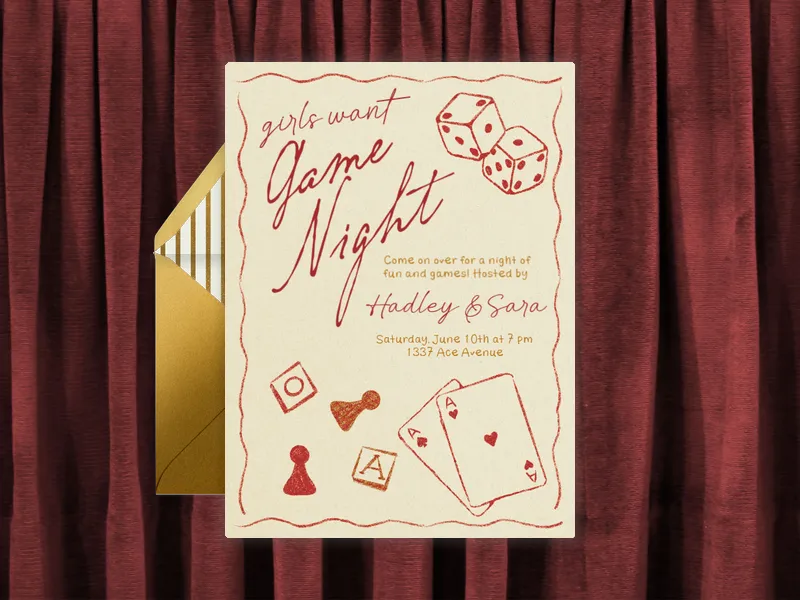 girls want
Game
Night
Come on over for a night of
fun and games! Hosted by
Hadley & Sara
Saturday, June 10th at 7 pm
1337 Ace Avenue
O
A
A
A
A